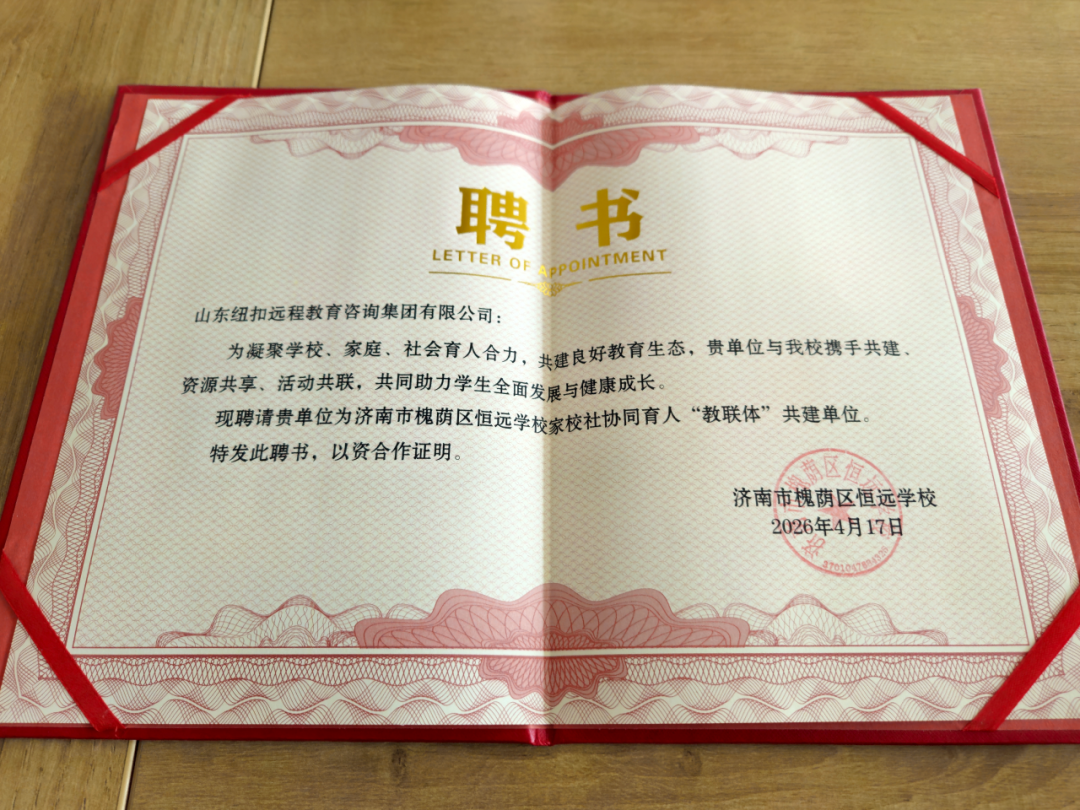 聘书
LETTER OF APPOINTMENT
山东纽扣远程教育咨询集团有限公司：
为凝聚学校、家庭、社会育人合力，共建良好教育生态，贵单位与我校携手共建、
资源共享、活动共联，共同助力学生全面发展与健康成长。
现聘请贵单位为济南市槐荫区恒远学校家校社协同育人“教联体”共建单位。
特发此聘书，以资合作证明。
济南市槐荫区恒远学校
2026年4月17日